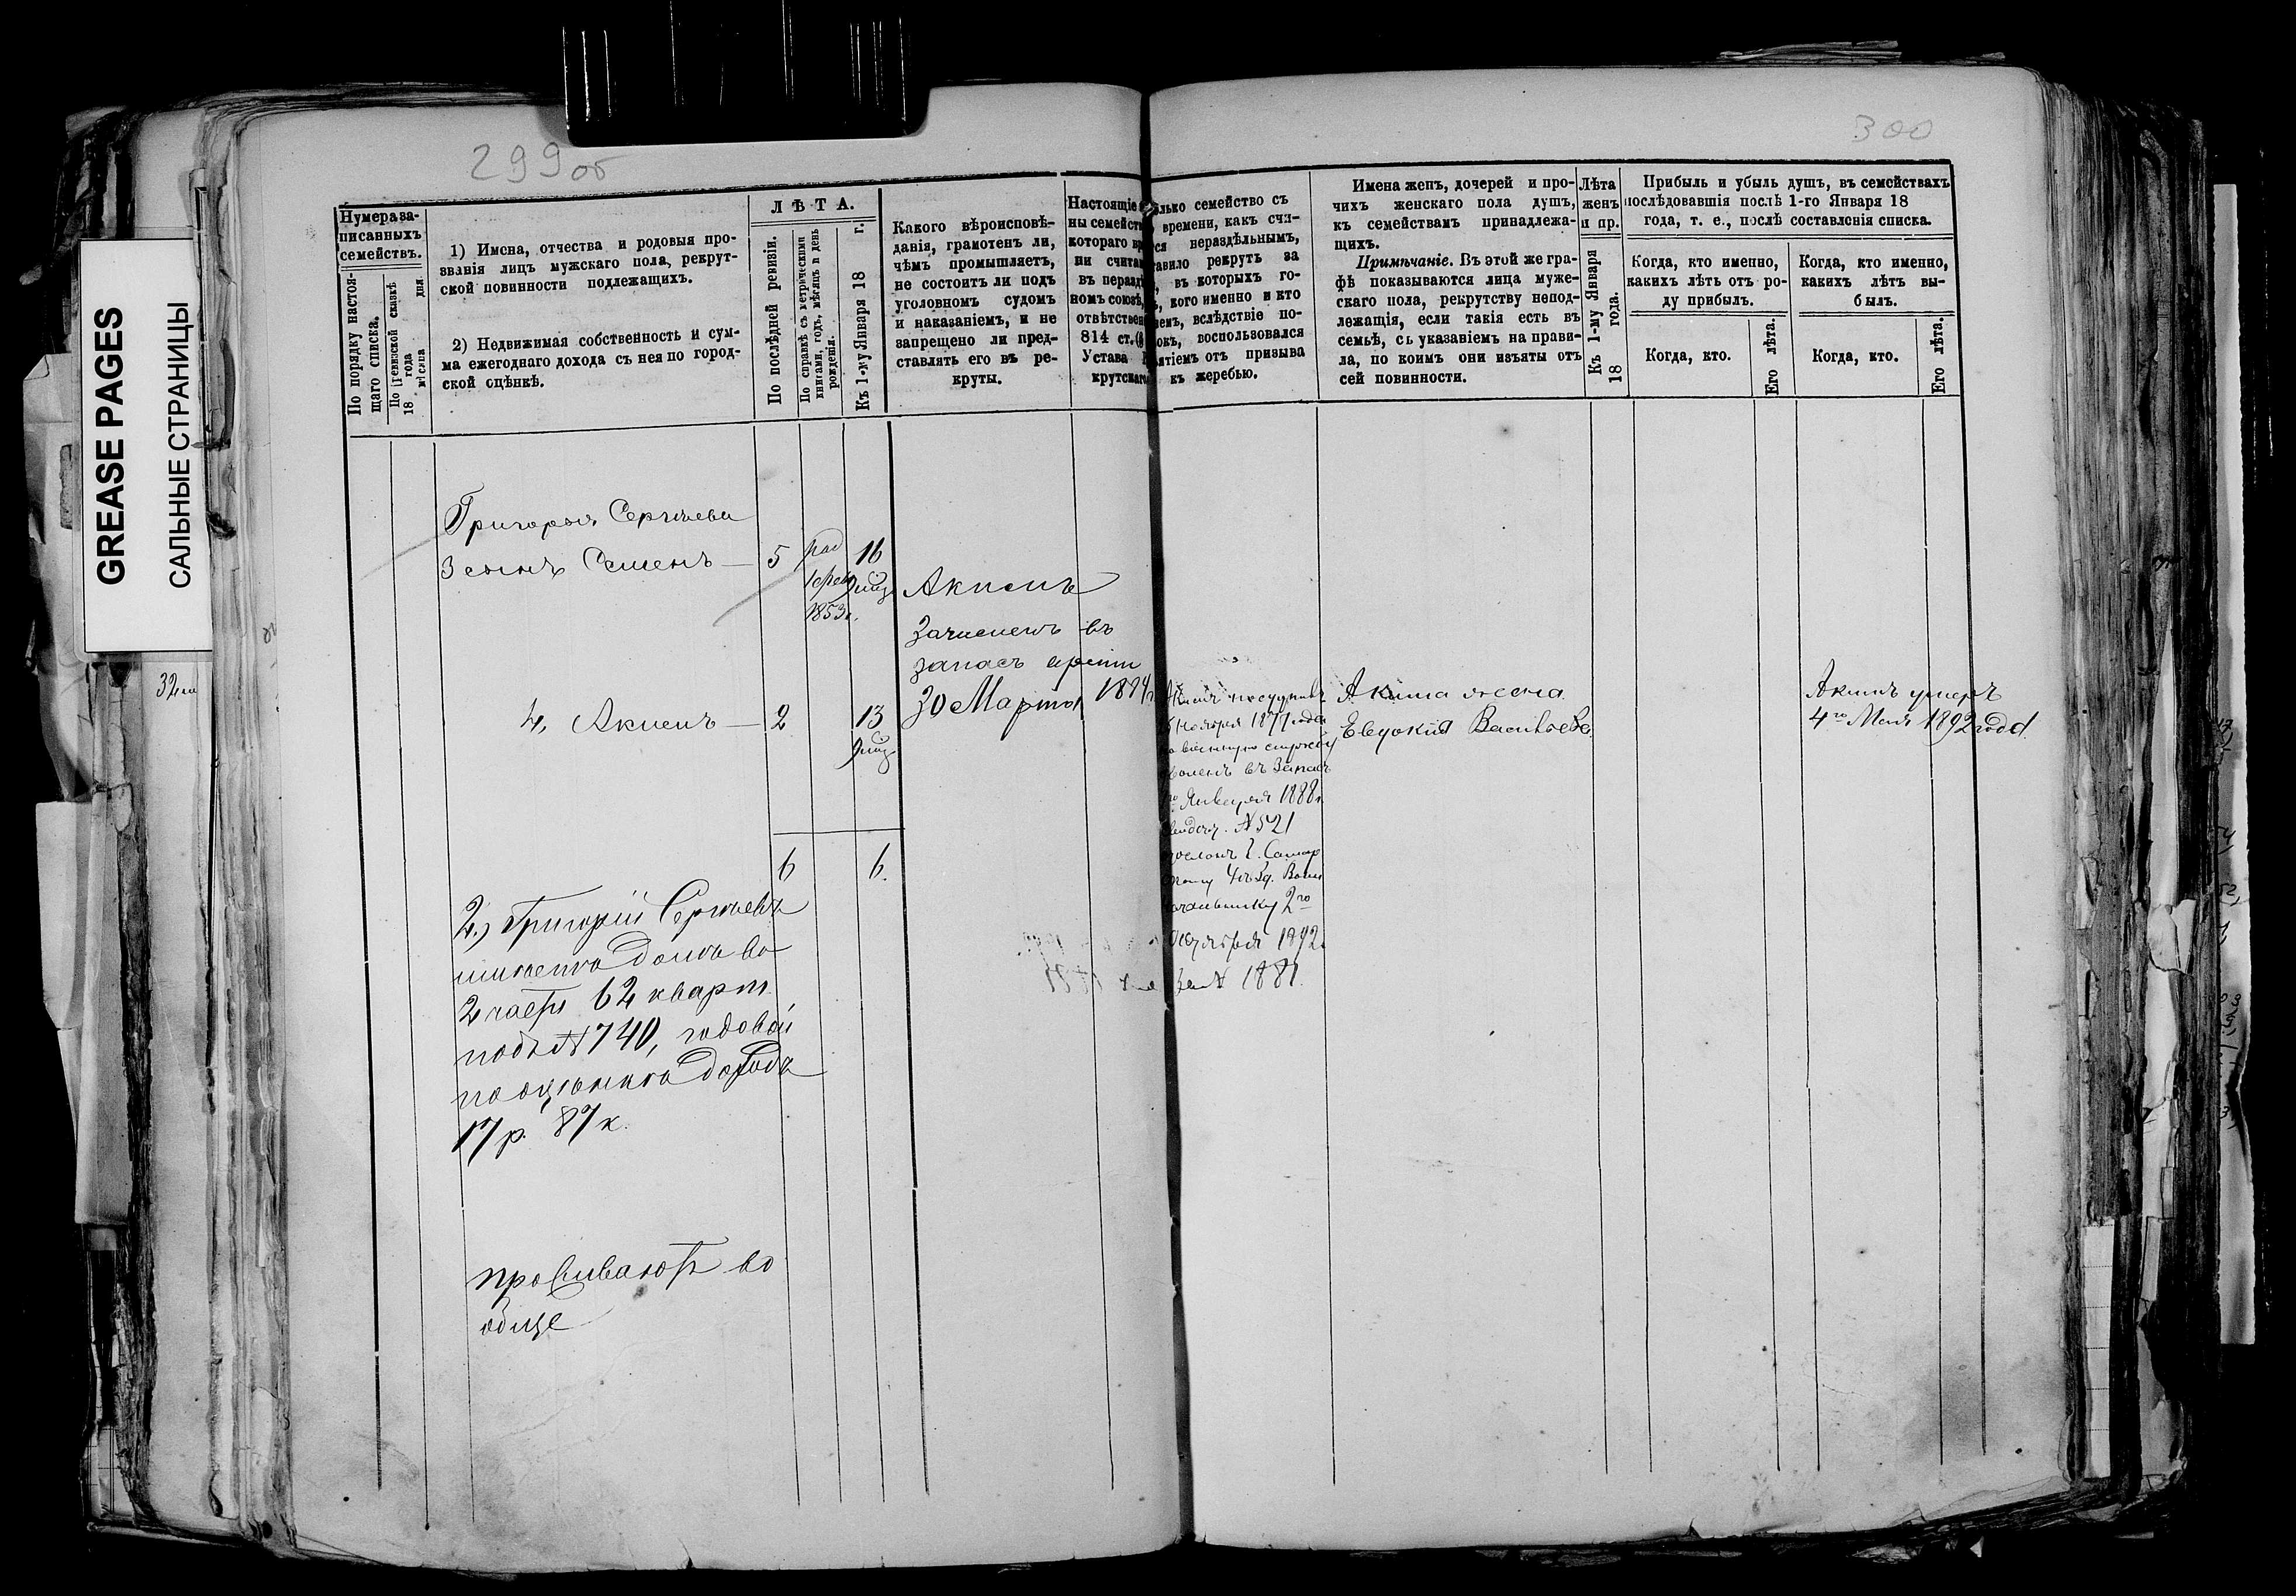 299 об
300
GREASE PAGES
САЛЬНЫЕ СТРАНИЦЫ
Нумера за-
писанныхъ
семействъ.
По порядку настоя-
щаго списка.
По Ревизской сказкѣ
18 года
мѣсяца дня
1) Имена, отчества и родовыя про-
званія лицъ мужскаго пола, рекрут-
ской повинности подлежащихъ.
2) Недвижимая собственность и сум-
ма ежегоднаго дохода съ нея по город-
ской оцѣнкѣ.
ЛѢТА.
По послѣдней ревизіи.
По справкѣ съ метрическими
книгами, годъ, мѣсяцъ и день
рожденія.
Къ 1-му Января 18 г.
Какого вѣроисповѣ-
данія, грамотенъ ли,
чѣмъ промышляетъ,
не состоитъ ли подъ
уголовномъ судомъ
и наказаніемъ, и не
запрещено ли пред-
ставлять его въ ре-
круты.
Настоящіе
ны семейств
котораго вр
ни счита
въ нераздѣ
номъ союзѣ,
отвѣтствен
814 ст.
Устава
крутскаго
олько семейство съ
времени, какъ счи-
ся нераздѣльнымъ,
тавило рекрутъ за
, въ которыхъ го-
, кого именно и кто
лемъ, вслѣдствіе по-
окъ, воспользовался
ятіемъ отъ призыва
къ жеребью.
Имена женъ, дочерей и про-
чихъ женскаго пола душъ,
къ семействамъ принадлежа-
щихъ.
Примѣчаніе. Въ этой же гра-
фѣ показываются лица муже-
скаго пола, рекрутству непод-
лежащія, если такія есть въ
семьѣ, съ указаніемъ на прави-
ла, по коимъ они изъяты отъ
сей повинности.
Лѣта
женъ
и пр.
Къ 1-му Января
18 года.
Прибыль и убыль душъ, въ семействахъ
послѣдовавшія послѣ 1-го Января 18
года, т. е., послѣ составленія списка.
Когда, кто именно,
какихъ лѣтъ отъ ро-
ду прибылъ.
Когда, кто.
Его лѣта.
Когда, кто именно,
какихъ лѣтъ вы-
былъ.
Когда, кто.
Его лѣта.
Григорья Сергѣева
3 сынъ Семенъ 5 16
1853г.
4, Акимъ 2 13
6 6.
Акимъ
Зачисленъ въ
запасъ арміи
30 Марта
Акимъ поступилъ
Ноября 1877 года
въ военную службу
уволенъ въ Запасъ
Января 1888г
№521
Начальнику 2го
Октября 1892г
1881.
Акима жена
Евдокія Васильева
Акимъ умеръ
4го Мая 1892 года
2.) Григорій Сергѣевъ
имѣетъ домъ во
2 части 62 кварт.
подъ №740, годовой
по оцѣнкѣ доходъ
17 р. 87 к.
проживаютъ во
обще
32